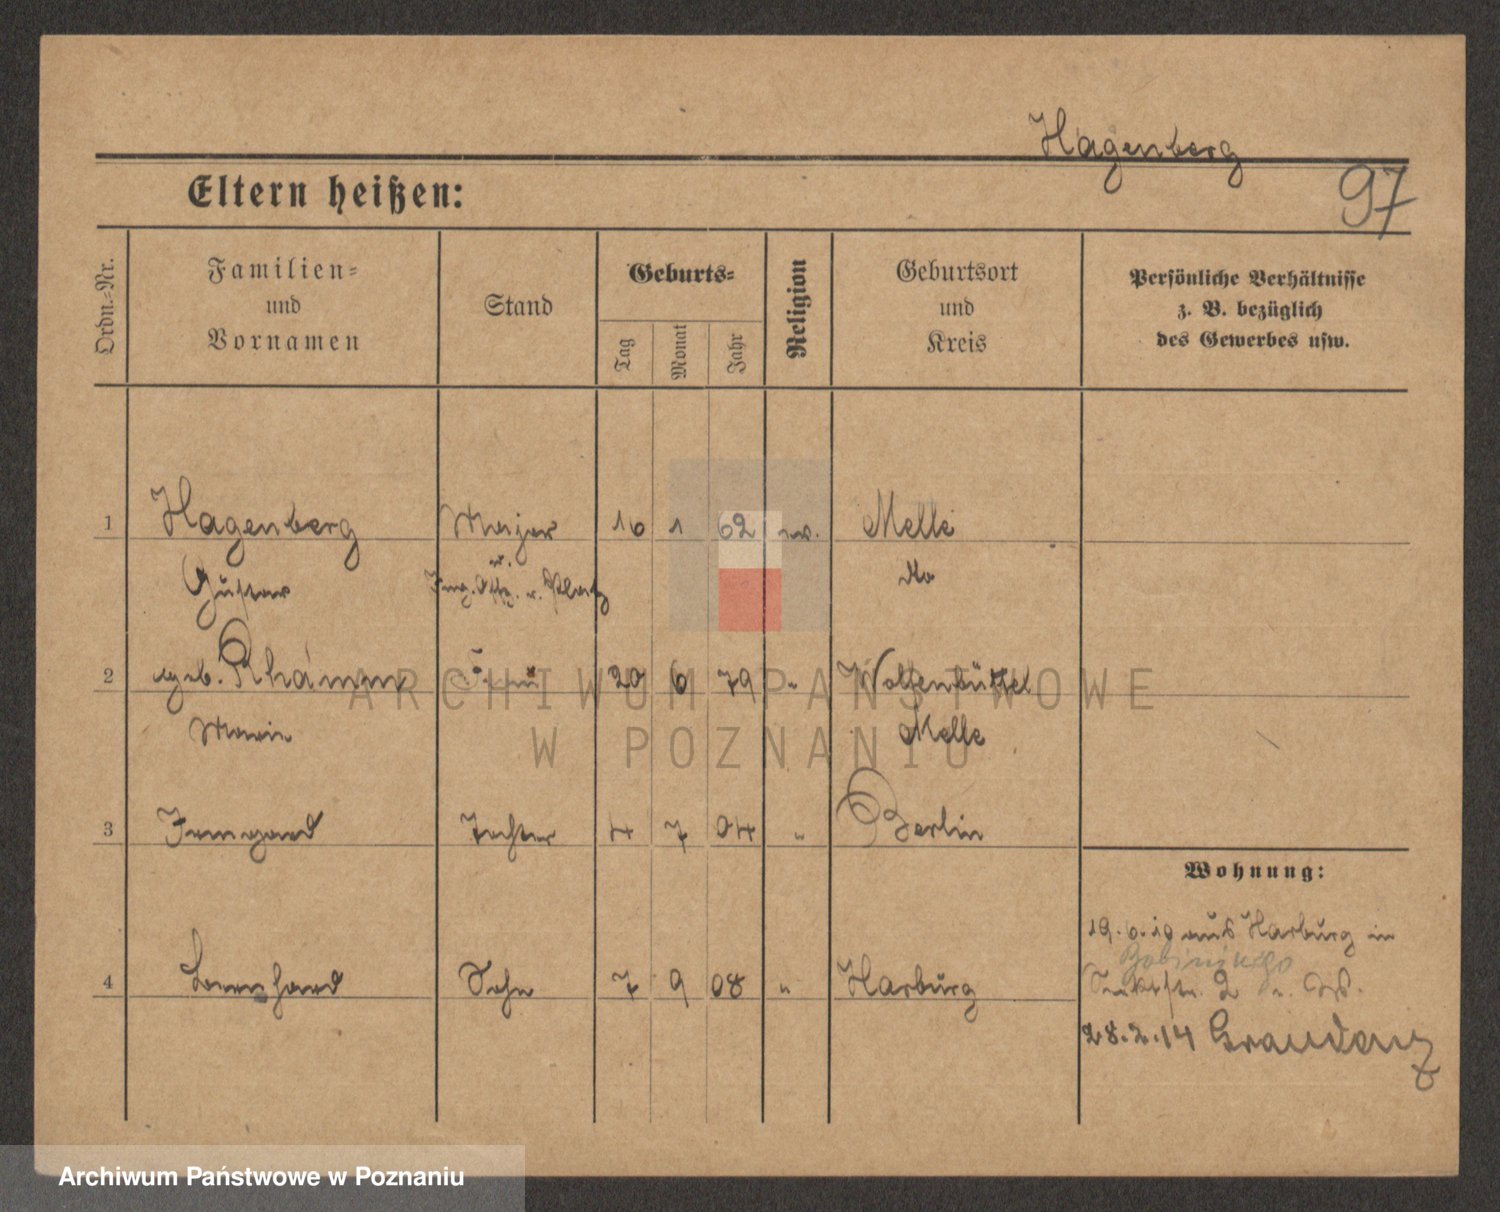 Hagenberg
97
Eltern heißen:
Ordn.-Nr.
Familien-
und
Vornamen
Stand
Geburts-
Tag
Monat
Jahr
Religion
Geburtsort
und
Kreis
Persönliche Verhältnisse
z. B. bezüglich
des Gewerbes usw.
1 Hagenberg Major 16 1 62 ev. Melle
u.
Gustav Ing. Offz. v. Platz do
2 geb. Rhamm Frau 20 6 79 " Wolfenbüttel
Marie Melle
3 Irmgard Tochter 4 7 04 " Berlin
Wohnung:
19. 6. 10 aus Harburg in
4 Bernhard Sohn 7 9 08 " Harburg
2
28. 2. 14 Graudenz
ARCHIWUM PAŃSTWOWE
W POZNANIU
Archiwum Państwowe w Poznaniu